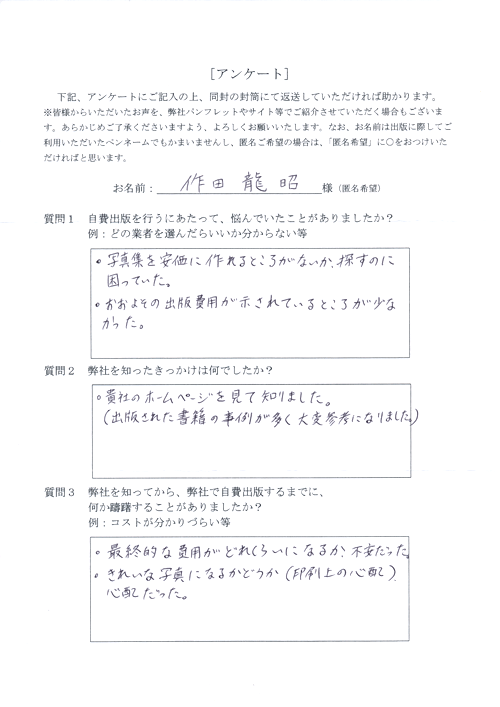 ［アンケート］
下記、アンケートにご記入の上、同封の封筒にて返送していただければ助かります。
※皆様からいただいたお声を、弊社パンフレットやサイト等でご紹介させていただく場合もございま
す。あらかじめご了承くださいますよう、よろしくお願いいたします。なお、お名前は出版に際してご
利用いただいたペンネームでもかまいませんし、匿名ご希望の場合は、「匿名希望」に○をおつけいた
だければと思います。
お名前： 作田 龍昭 様（匿名希望）
質問１ 自費出版を行うにあたって、悩んでいたことがありましたか？
例：どの業者を選んだらいいか分からない等
・写真集を安価に作れるところがないか、探すのに
困っていた。
・おおよその出版費用が示されているところが少な
かった。
質問２ 弊社を知ったきっかけは何でしたか？
・貴社のホームページを見て知りました。
(出版された書籍の事例が多く大変参考になりました。)
質問３ 弊社を知ってから、弊社で自費出版するまでに、
何か躊躇することがありましたか？
例：コストが分かりづらい等
・最終的な費用がどれくらいになるか、不安だった。
・きれいな写真になるかどうか（印刷上の心配）、
心配だった。